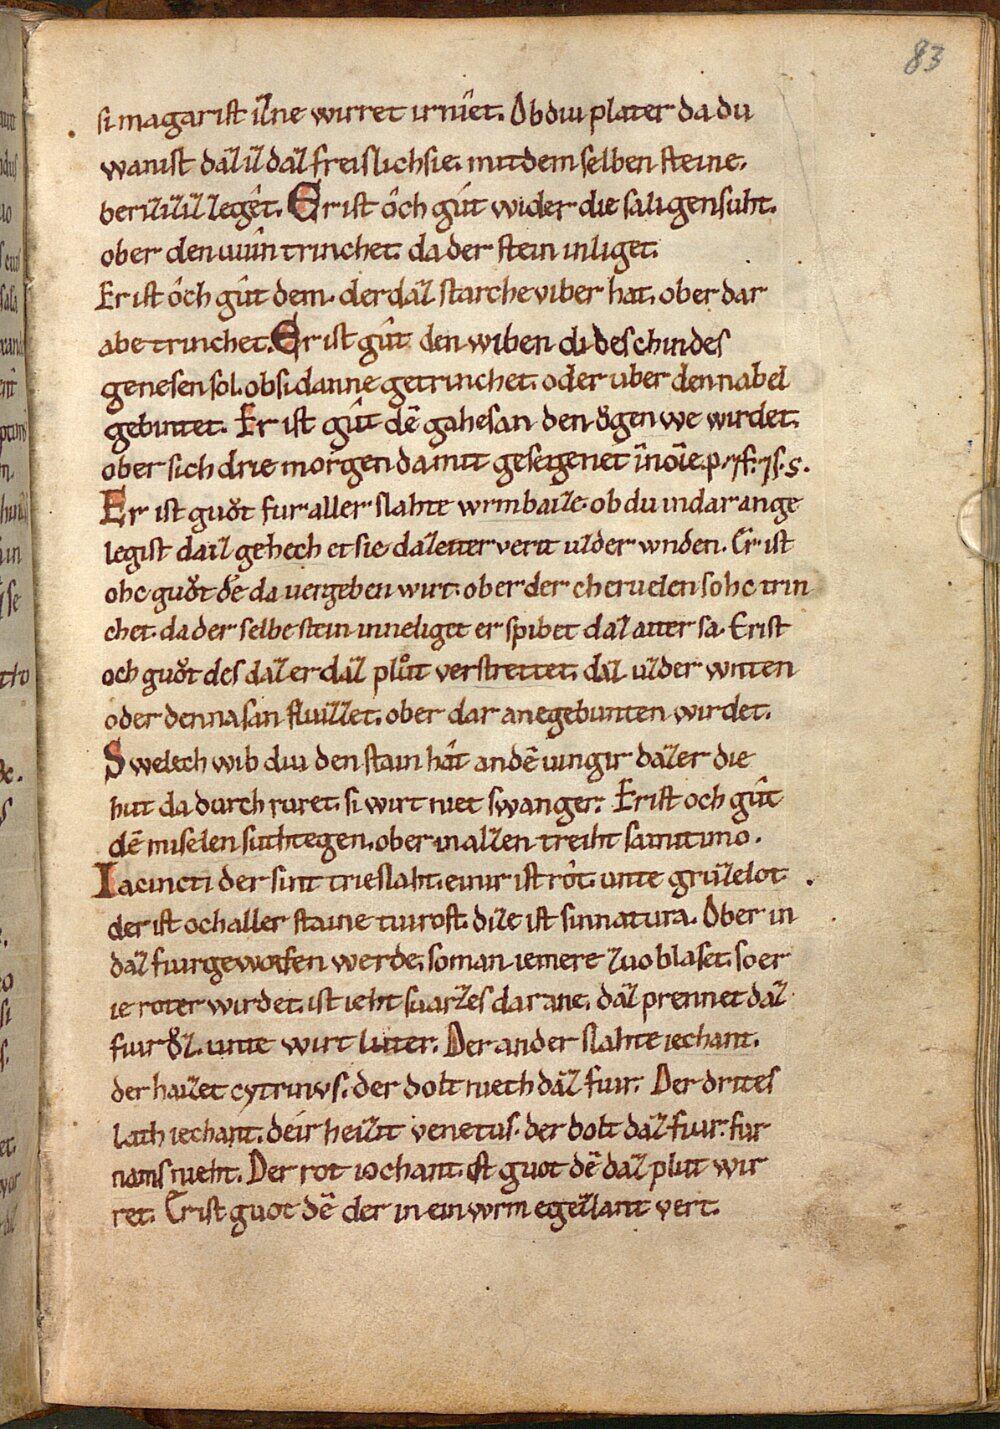 83
si magar ist iʒ ne wirret ir niet. Ob diu plater da du
wanist daʒ iʒ daʒ freislich sie. mit dem selben steine.
ber iʒ leget. Er ist och gút wider die saligen suht.
ober den wîn trinchet. da der stein inliget.
Er ist ôch gût dem. der daʒ starche viber hat. ober dar
abe trinchet. Er ist gût den wiben di des chindes
genesen sol. ob si danne getrinchet. oder uber den nabel
gebintet. Er ist gût dē gahesan den ŏgen we wirdet.
ober sich drie morgen da mit gesegenet în nōīe. p. ⁊ f. ⁊ s. s.
Er ist guðt fur aller slahte wrmbaiʒe. ob du in dar ange
legist daiʒ gehech et sie daʒ etter vert uʒ der wnden. Er ist
ohc guðt dē da uergeben wirt. ober der cheruelen sohc trin
chet. da der selbe stein inne liget er spibet daʒ atter sa. Er ist
och guðt des daʒ er daʒ plůt verstrettet. daʒ uʒ der witten
oder den nasan fluiʒʒet. ober dar ane gebunten wirdet.
Swelech wib diu den stain hât an dē uingir daʒ er die
hut da durch ruret. si wirt niet swanger. Er ist och gût
dē miselensuthtegen. ober in aʒʒen treiht sant timo.
Iacincti der sint trieslaht. einir ist rôt. unte gruʒelot
der ist och aller staine tiurost. diʒe ist sin natura. Ober in
daʒ fiur geworfen werde. so man iemere ʒuo blaset. so er
ie roter wirdet. ist ieht suarʒes dar ane. daʒ prennet daʒ
fiur ŏʒ. unte wirt luter. Der ander slahte iechant.
der haiʒet cytrinvs. der dolt niech daʒ fiur. Der drites
lath iechant. deir heiʒit venetus. der dolt daʒ fiur. fur
nams nieht. Der rot iochant. ist guot dē daʒ plut wir
ret. Er ist guot dē der in ein wrm egeʒʒant vert.